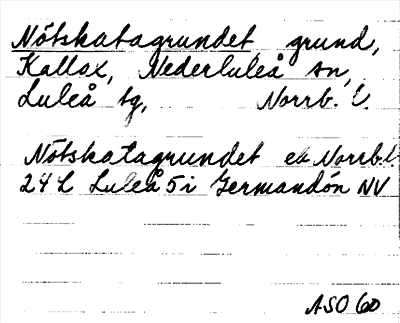 Nötskatagrundet, grund,
Kallax, Nederluleå sn,
Luleå tg, Norrb. l.
Nötskatagrundet ek Norrb.l.
24 L Luleå 5i Germandön NV
ASO 60